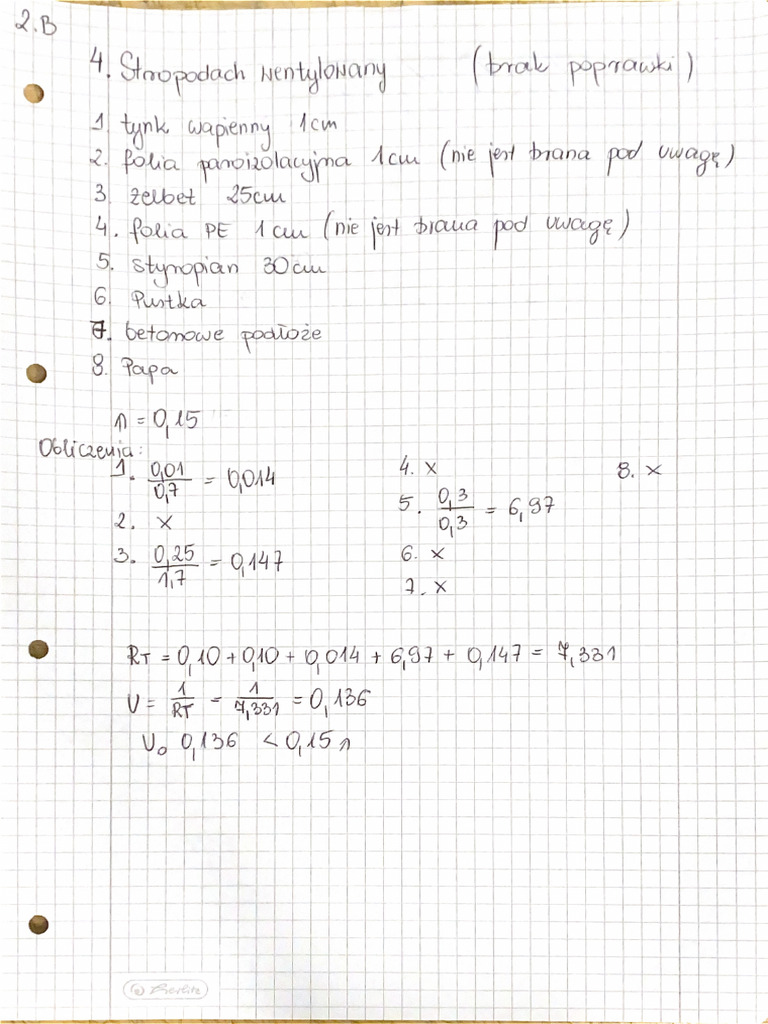 2.B
4. Stropodach wentylowany (brak poprawski)
1. tynk wapienny 1cm
2. folia paroizolacyjna 1cm (nie jest brana pod uwagę)
3. żelbet 25cm
4. folia PE 1cm (nie jest brana pod uwagę)
5. styropian 30cm
6. Pustka
7. betonowe podłoże
8. Papa
n = 0,15
Obliczenia:
1. 0,01/0,7 = 0,014
2. x
3. 0,25/1,7 = 0,147
4. x
5. 0,3/0,3 = 6,97
6. x
7. x
8. x
RT = 0,10 + 0,10 + 0,014 + 6,97 + 0,147 = 7,331
U = 1/RT = 1/7,331 = 0,136
U₀ 0,136 < 0,15 n
Berlitz